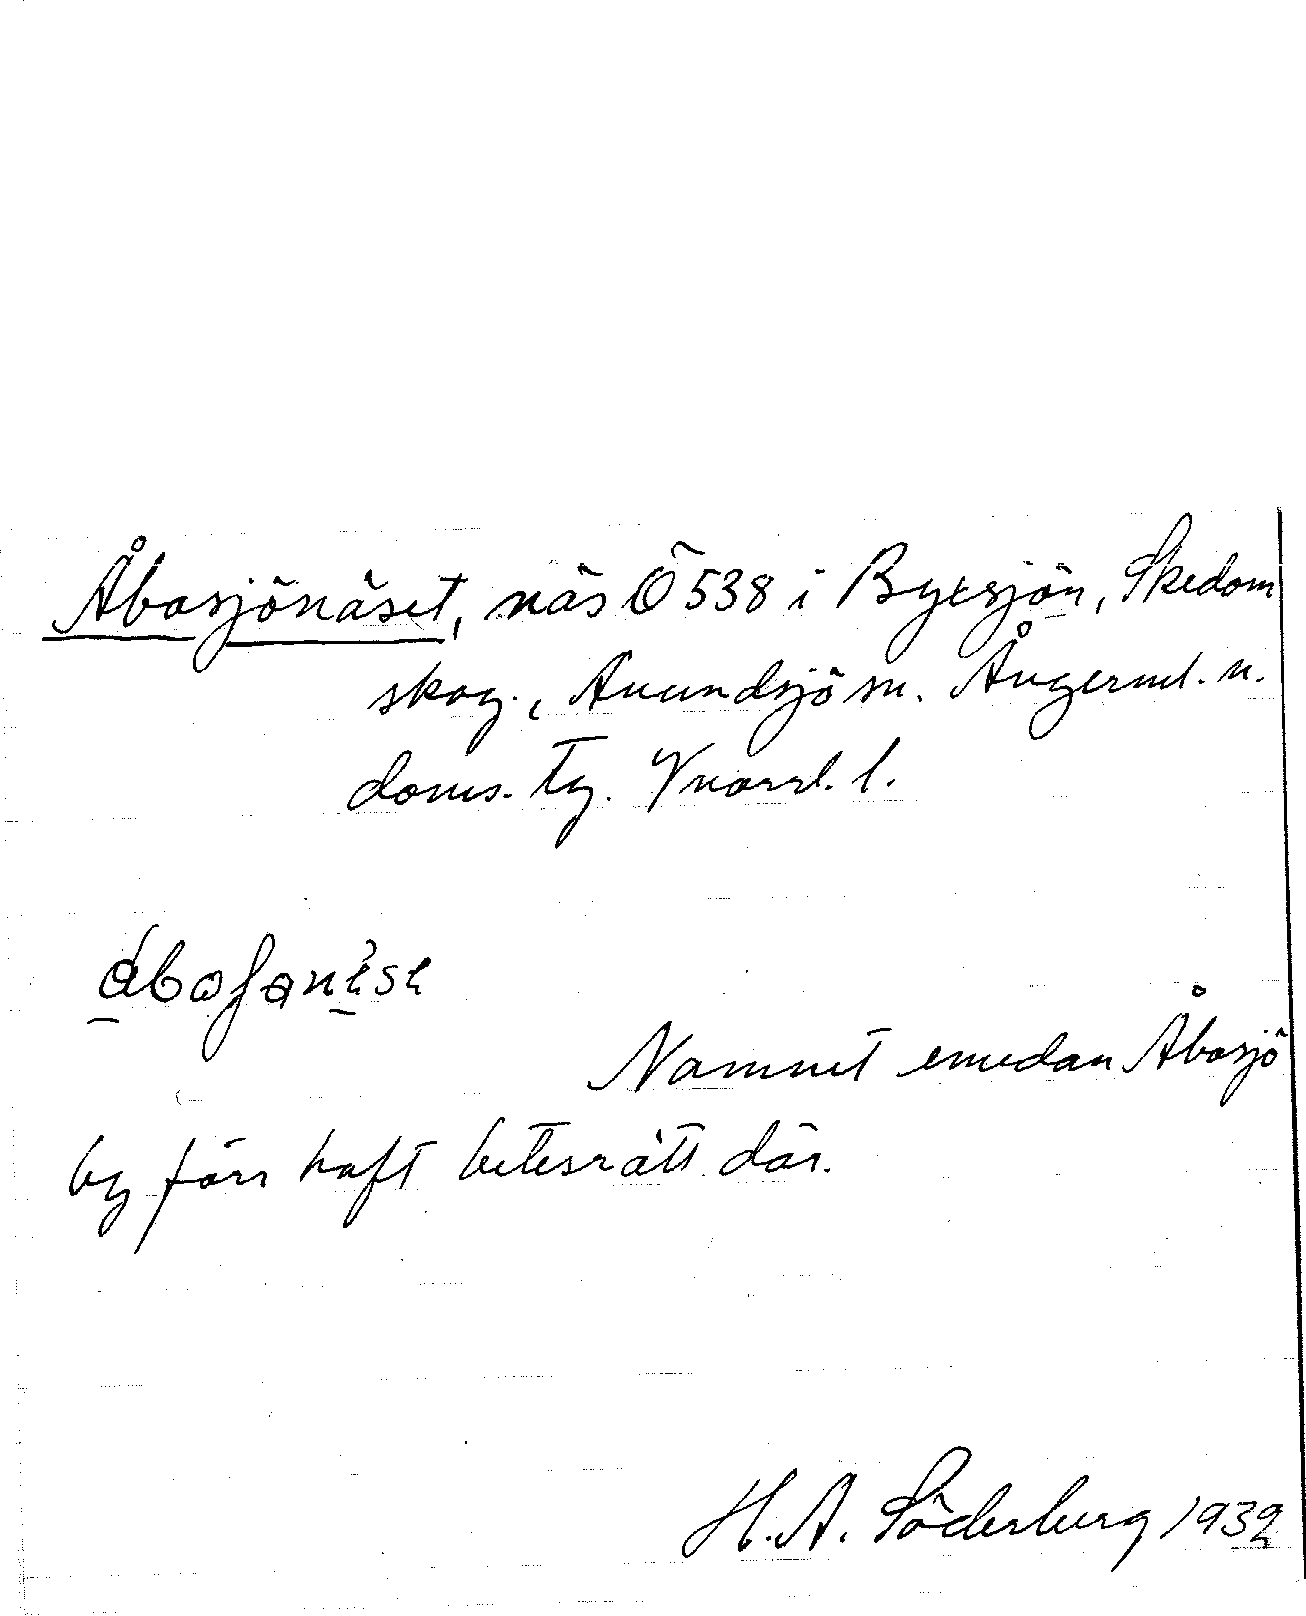 Åbosjönäset, näs Ö 538 i Byxsjön, Skedom
skog., Anundsjö sn. Ångerml. n.
doms. tg. Vnorrl. l.
åboʃɵnɛ̀sɩ
Namnet emedan Åbosjö
by förr haft betesrätt där.
H. A. Söderberg 1932